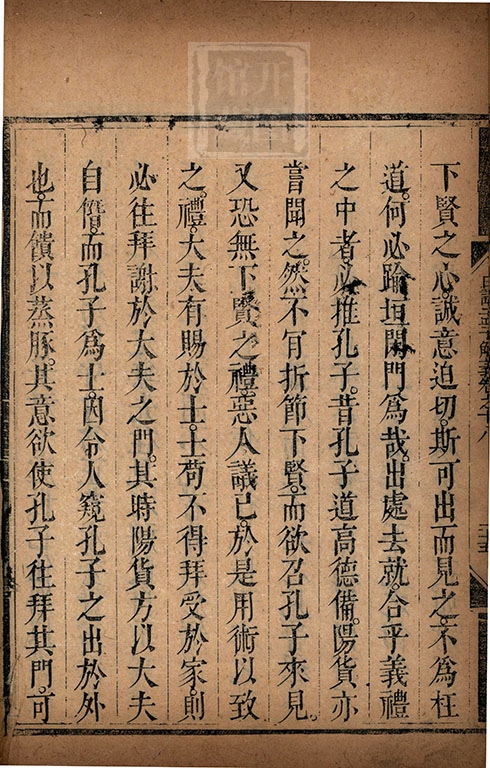 下賢之心。誠意迫切。斯可出而見之。不為枉
道。何必踰垣閉門為哉。出處去就。合乎義禮
之中者。必推孔子。昔孔子道高德備。陽貨亦
嘗聞之。然不肯折節下賢。而欲召孔子來見。
又恐無下賢之禮。惡人議已。於是用術以致
之。禮。大夫有賜於士。士苟不得拜受於家。則
必往拜謝於大夫之門。其時陽貨方以大夫
自僭。而孔子為士。因令人窺孔子之出於外
也。而饋以蒸豚。其意欲使孔子往拜其門。可